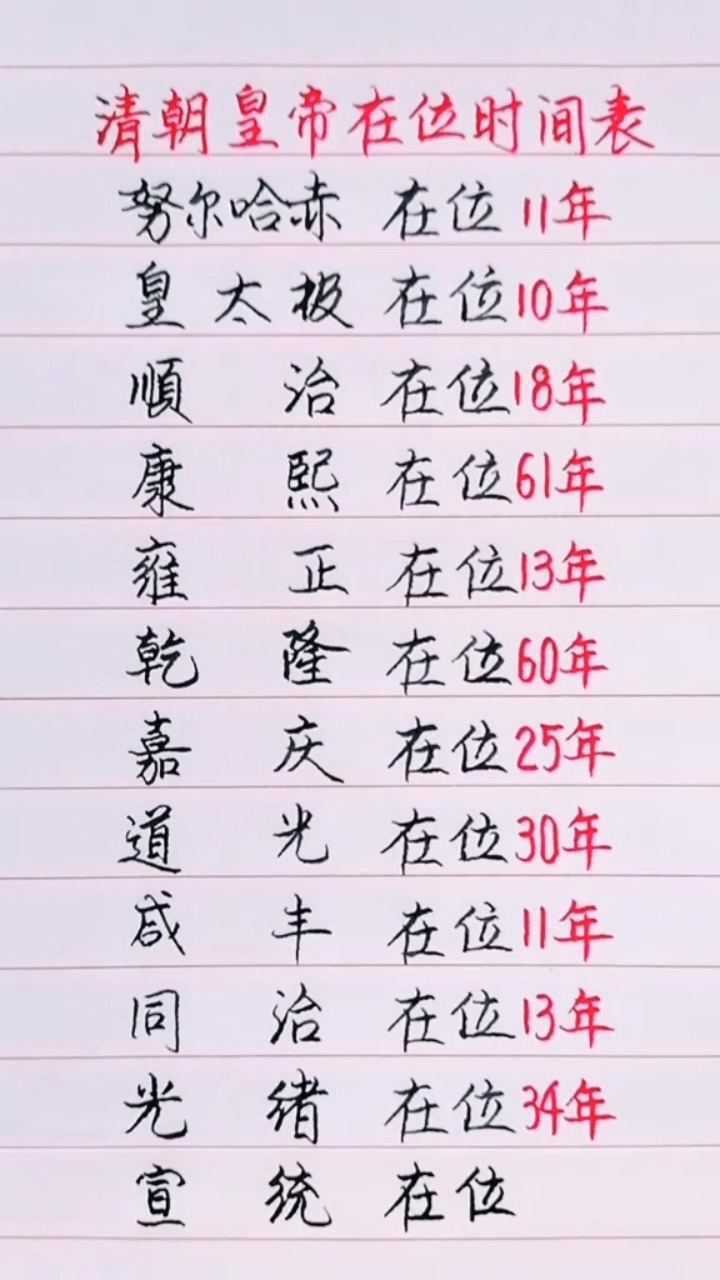 清朝皇帝在位时间表
努尔哈赤 在位 11年
皇太极 在位10年
順治 在位18年
康熙 在位61年
雍正 在位13年
乾隆 在位60年
嘉庆 在位25年
道光 在位30年
咸丰 在位11年
同治 在位13年
光绪 在位34年
宣统 在位